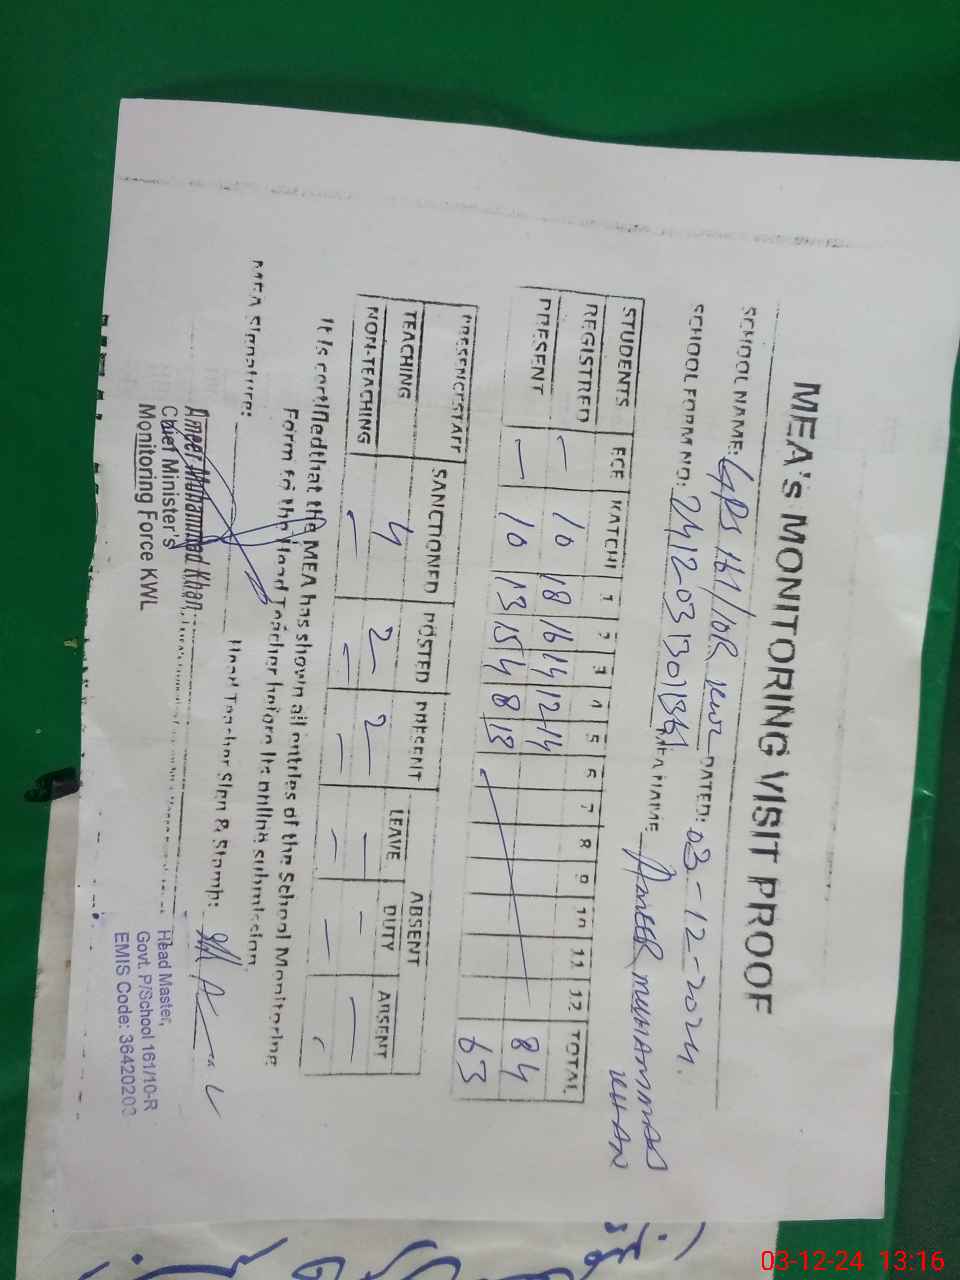 MEA's MONITORING VISIT PROOF
SCHOOL NAME: GPS 161/10R KWL DATED: 03-12-2024.
SCHOOL FORM NO: MEA NAME AMEER MUHAMMAD KHAN
STUDENTS ECE KATCHI 1 2 3 4 5 6 7 8 9 10 11 12 TOTAL
REGISTRED — 10 18 16 14 12 14 84
PRESENT — 10 13 15 4 8 13 63
PRESENCESTAFF SANCTIONED POSTED PRESENT ABSENT
LEAVE DUTY ABSENT
TEACHING 4 2 2 — — —
NON-TEACHING — — — — — -
It is certifiedthat the MEA has shown all entries of the School Monitoring
Form to the Head Teacher before its online submission.
MEA Signature: Head Teacher Sign & Stamp:
Ameer Muhammad Khan,
Chief Minister's
Monitoring Force KWL
Head Master,
Govt. P/School 161/10-R
EMIS Code: 36420203
03-12-24 13:16